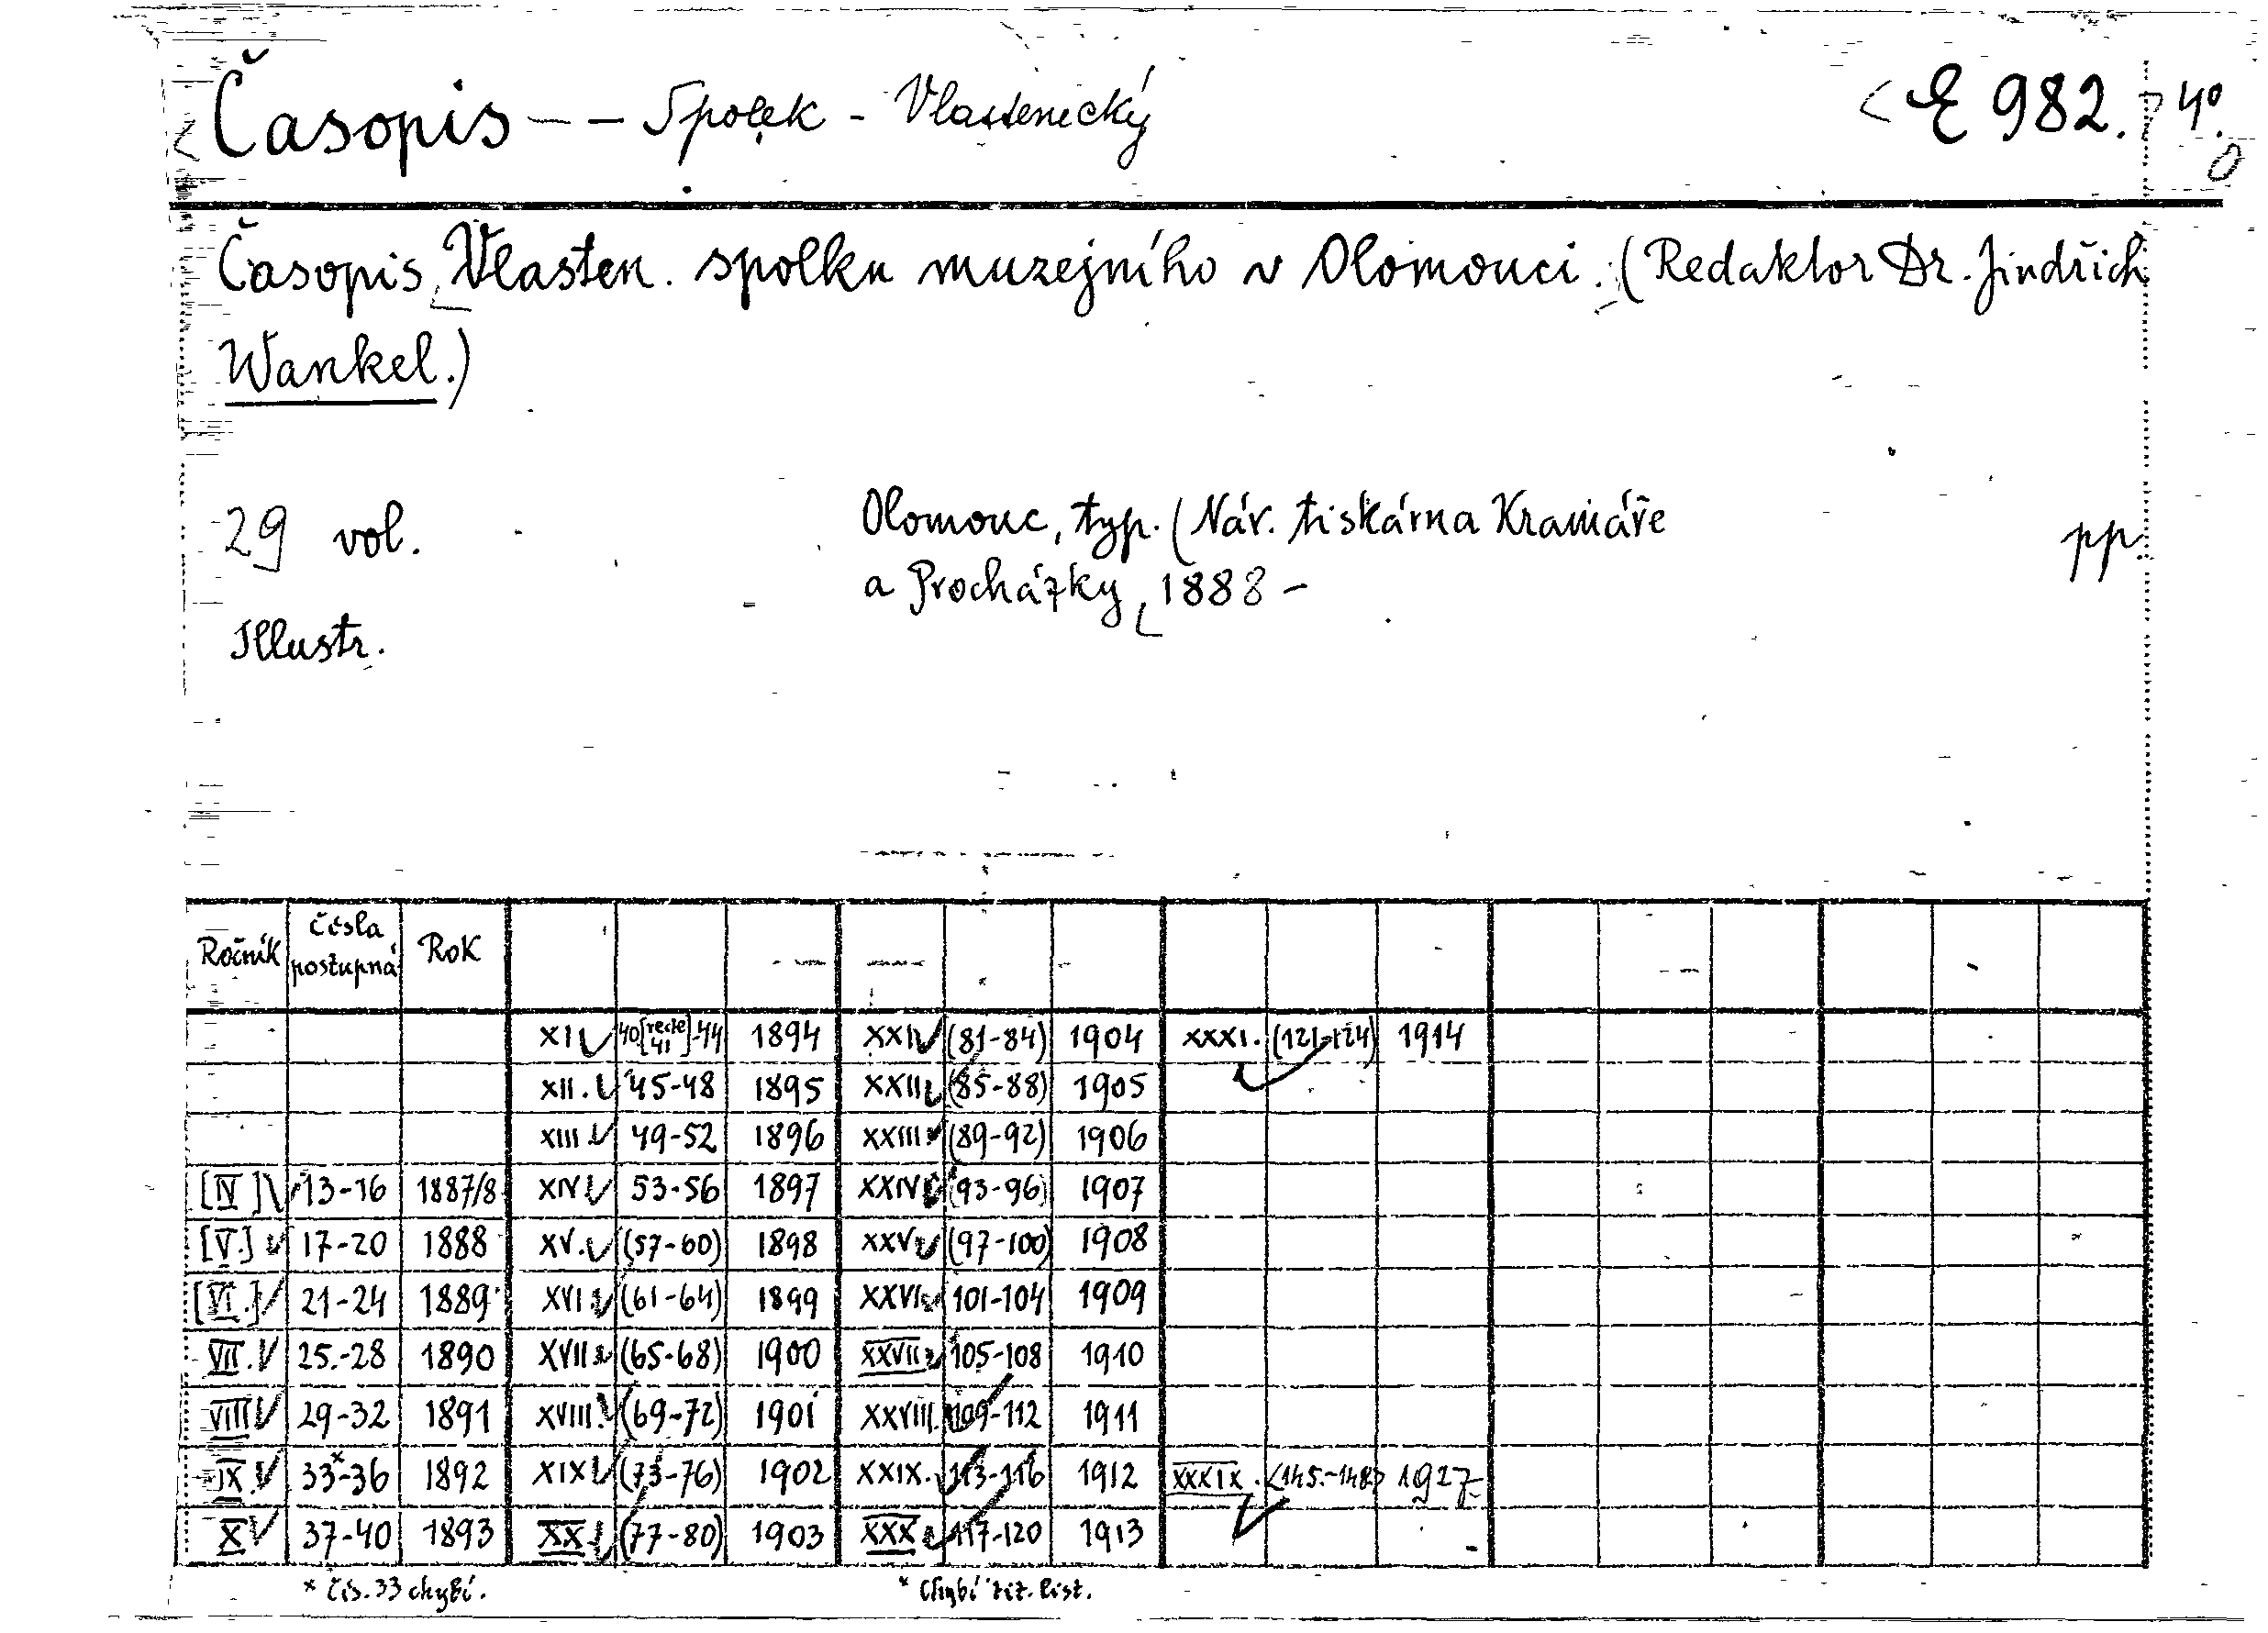 Časopis - - Spolek - Vlastenecký < E 982. > 4°.
Časopis Vlasten. spolku muzejního v Olomouci. (Redaktor Dr. Jindřich
Wankel.)
29 vol. Olomouc, typ. (Nár. tiskárna Kramáře pp.
a Procházky, 1888 -
Illustr.
Ročník čísla postupná Rok
XI 40[recte 41]-44 1894 XXI (81-84) 1904 XXXI. (121-124) 1914
XII. 45-48 1895 XXII (85-88) 1905
XIII 49-52 1896 XXIII (89-92) 1906
[IV] 13-16 1887/8 XIV 53-56 1897 XXIV (93-96) 1907
[V.] 17-20 1888 XV. (57-60) 1898 XXV (97-100) 1908
[VI.] 21-24 1889 XVI (61-64) 1899 XXVI 101-104 1909
VII. 25.-28 1890 XVII (65-68) 1900 XXVII 105-108 1910
VIII 29-32 1891 XVIII. (69-72) 1901 XXVIII. 109-112 1911
IX. 33*-36 1892 XIX (73-76) 1902 XXIX. 113-116 1912 XXXIX. <145.-148> 1927
X 37-40 1893 XX (77-80) 1903 XXX 117-120 1913
* čís. 33 chybí. * Chybí tit. list.